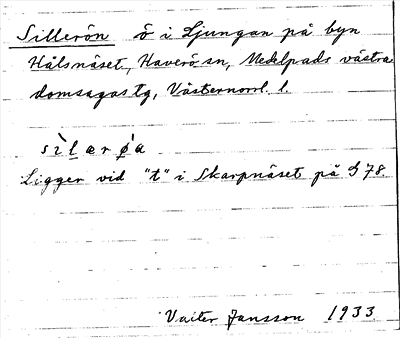 Sillerön ö i Ljungan på byn
Hålsnäset, Haverö sn, Medelpads västra
domsagas tg, Västernorrl. l.
sìl̲ærǿa
Ligger vid "t" i Skarpnäset på G 78.
Valter Jansson 1933